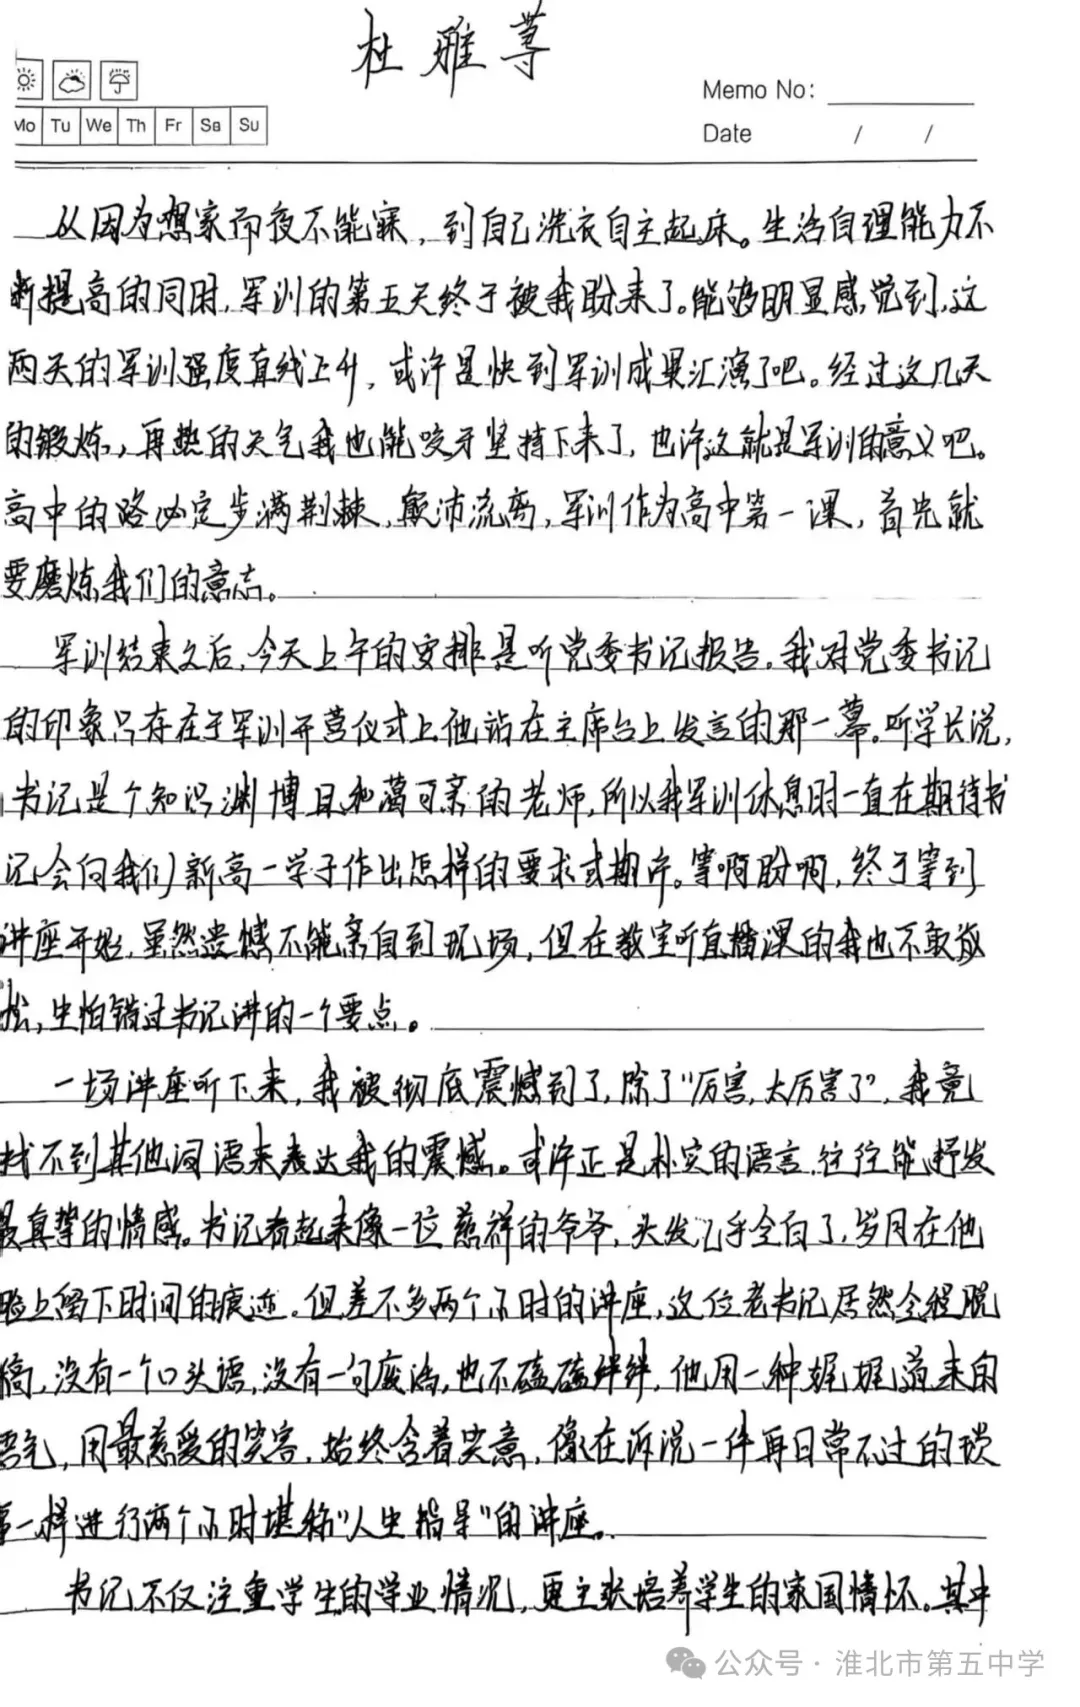 杜雅荨
Memo No:
Mo Tu We Th Fr Sa Su
Date / /
从因为想家而夜不能寐，到自己洗衣自主起床。生活自理能力不
断提高的同时，军训的第五天终于被我盼来了。能够明显感觉到，这
两天的军训强度直线上升，或许是快到军训成果汇演了吧。经过这几天
的锻炼，再热的天气我也能咬牙坚持下来了，也许这就是军训的意义吧。
高中的路必定步满荆棘，颠沛流离，军训作为高中第一课，首先就
要磨炼我们的意志。
军训结束之后，今天上午的安排是听党委书记报告。我对党委书记
的印象只存在于军训开营仪式上他站在主席台上发言的那一幕。听学长说，
书记是个知识渊博且和蔼可亲的老师，所以我军训休息时一直在期待书
记会向我们新高一学子作出怎样的要求或期许。等啊盼啊，终于等到
讲座开始，虽然遗憾不能亲自到现场，但在教室听直播课的我也不敢放
松，生怕错过书记讲的一个要点。
一场讲座听下来，我被彻底震撼到了，除了“厉害，太厉害了”，我竟
找不到其他词语来表达我的震撼。或许正是朴实的语言，往往能抒发
最真挚的情感。书记看起来像一位慈祥的爷爷，头发几乎全白了，岁月在他
脸上留下时间的痕迹。但差不多两个小时的讲座，这位老书记居然全程脱
稿，没有一个口头语，没有一句废话，也不磕磕绊绊，他用一种娓娓道来的
语气，用最慈爱的笑容，始终含着笑意，像在诉说一件再日常不过的琐
事一样进行两个小时堪称“人生指导”的讲座。
书记不仅注重学生的学业情况，更主张培养学生的家国情怀。其中
公众号·淮北市第五中学